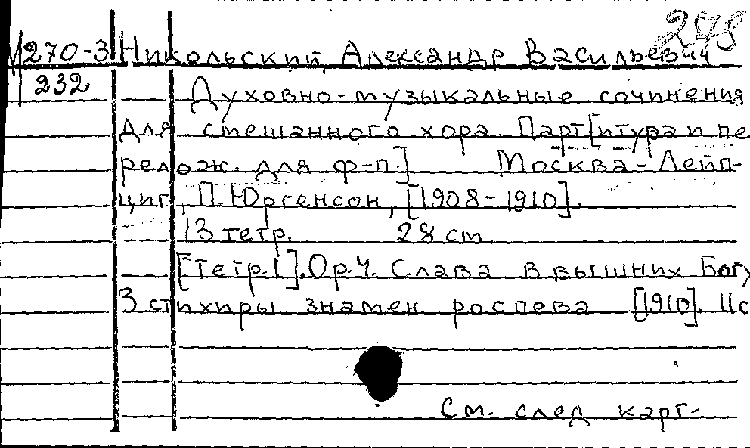 М270-3 Никольский, Александр Васильевич
232 Духовно-музыкальные сочинения
для смешанного хора. Парт[итура и пе
релож. для ф-п.] Москва-Лейп-
циг, П. Юргенсон, [1908-1910].
13 тетр. 28 см
[Тетр.1]. Op.4. Слава в вышних Богу
3 стихиры знамен роспева [1910]. 11с
См. след карт-